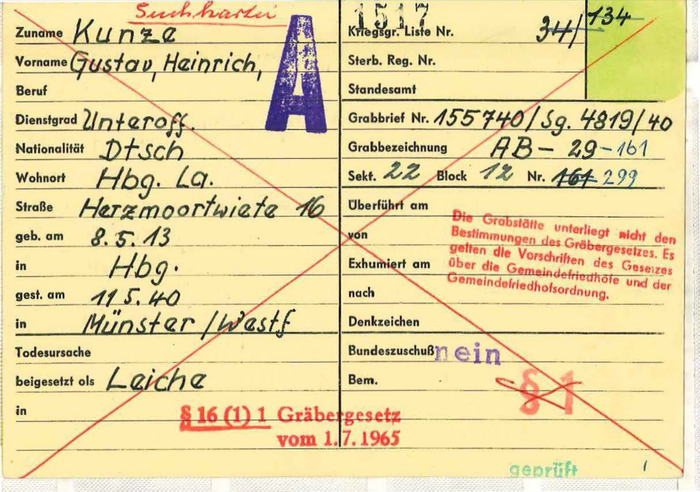 Suchkartei
Zuname Kunze
Vorname Gustav, Heinrich,
Beruf
Dienstgrad Unteroff.
Nationalität Dtsch
Wohnort Hbg. La.
Straße Herzmoortwiete 16
geb. am 8.5.13
in Hbg.
gest. am 11.5.40
in Münster/Westf
Todesursache
beigesetzt als Leiche
in
A
1517
Kriegsgr. Liste Nr. 34/134
Sterb. Reg. Nr.
Standesamt
Grabbrief Nr. 155740/Sg. 4819/40
Grabbezeichnung AB-29-161
Sekt. 22 Block 12 Nr. 161 299
Überführt am
von
Exhumiert am
nach
Die Grabstätte unterliegt nicht den
Bestimmungen des Gräbergesetzes. Es
gelten die Vorschriften des Gesetzes
über die Gemeindefriedhöfe und der
Gemeindefriedhofsordnung.
Denkzeichen
Bundeszuschuß nein
Bem. § 1
§ 16 (1) 1 Gräbergesetz
vom 1.7.1965
geprüft
1